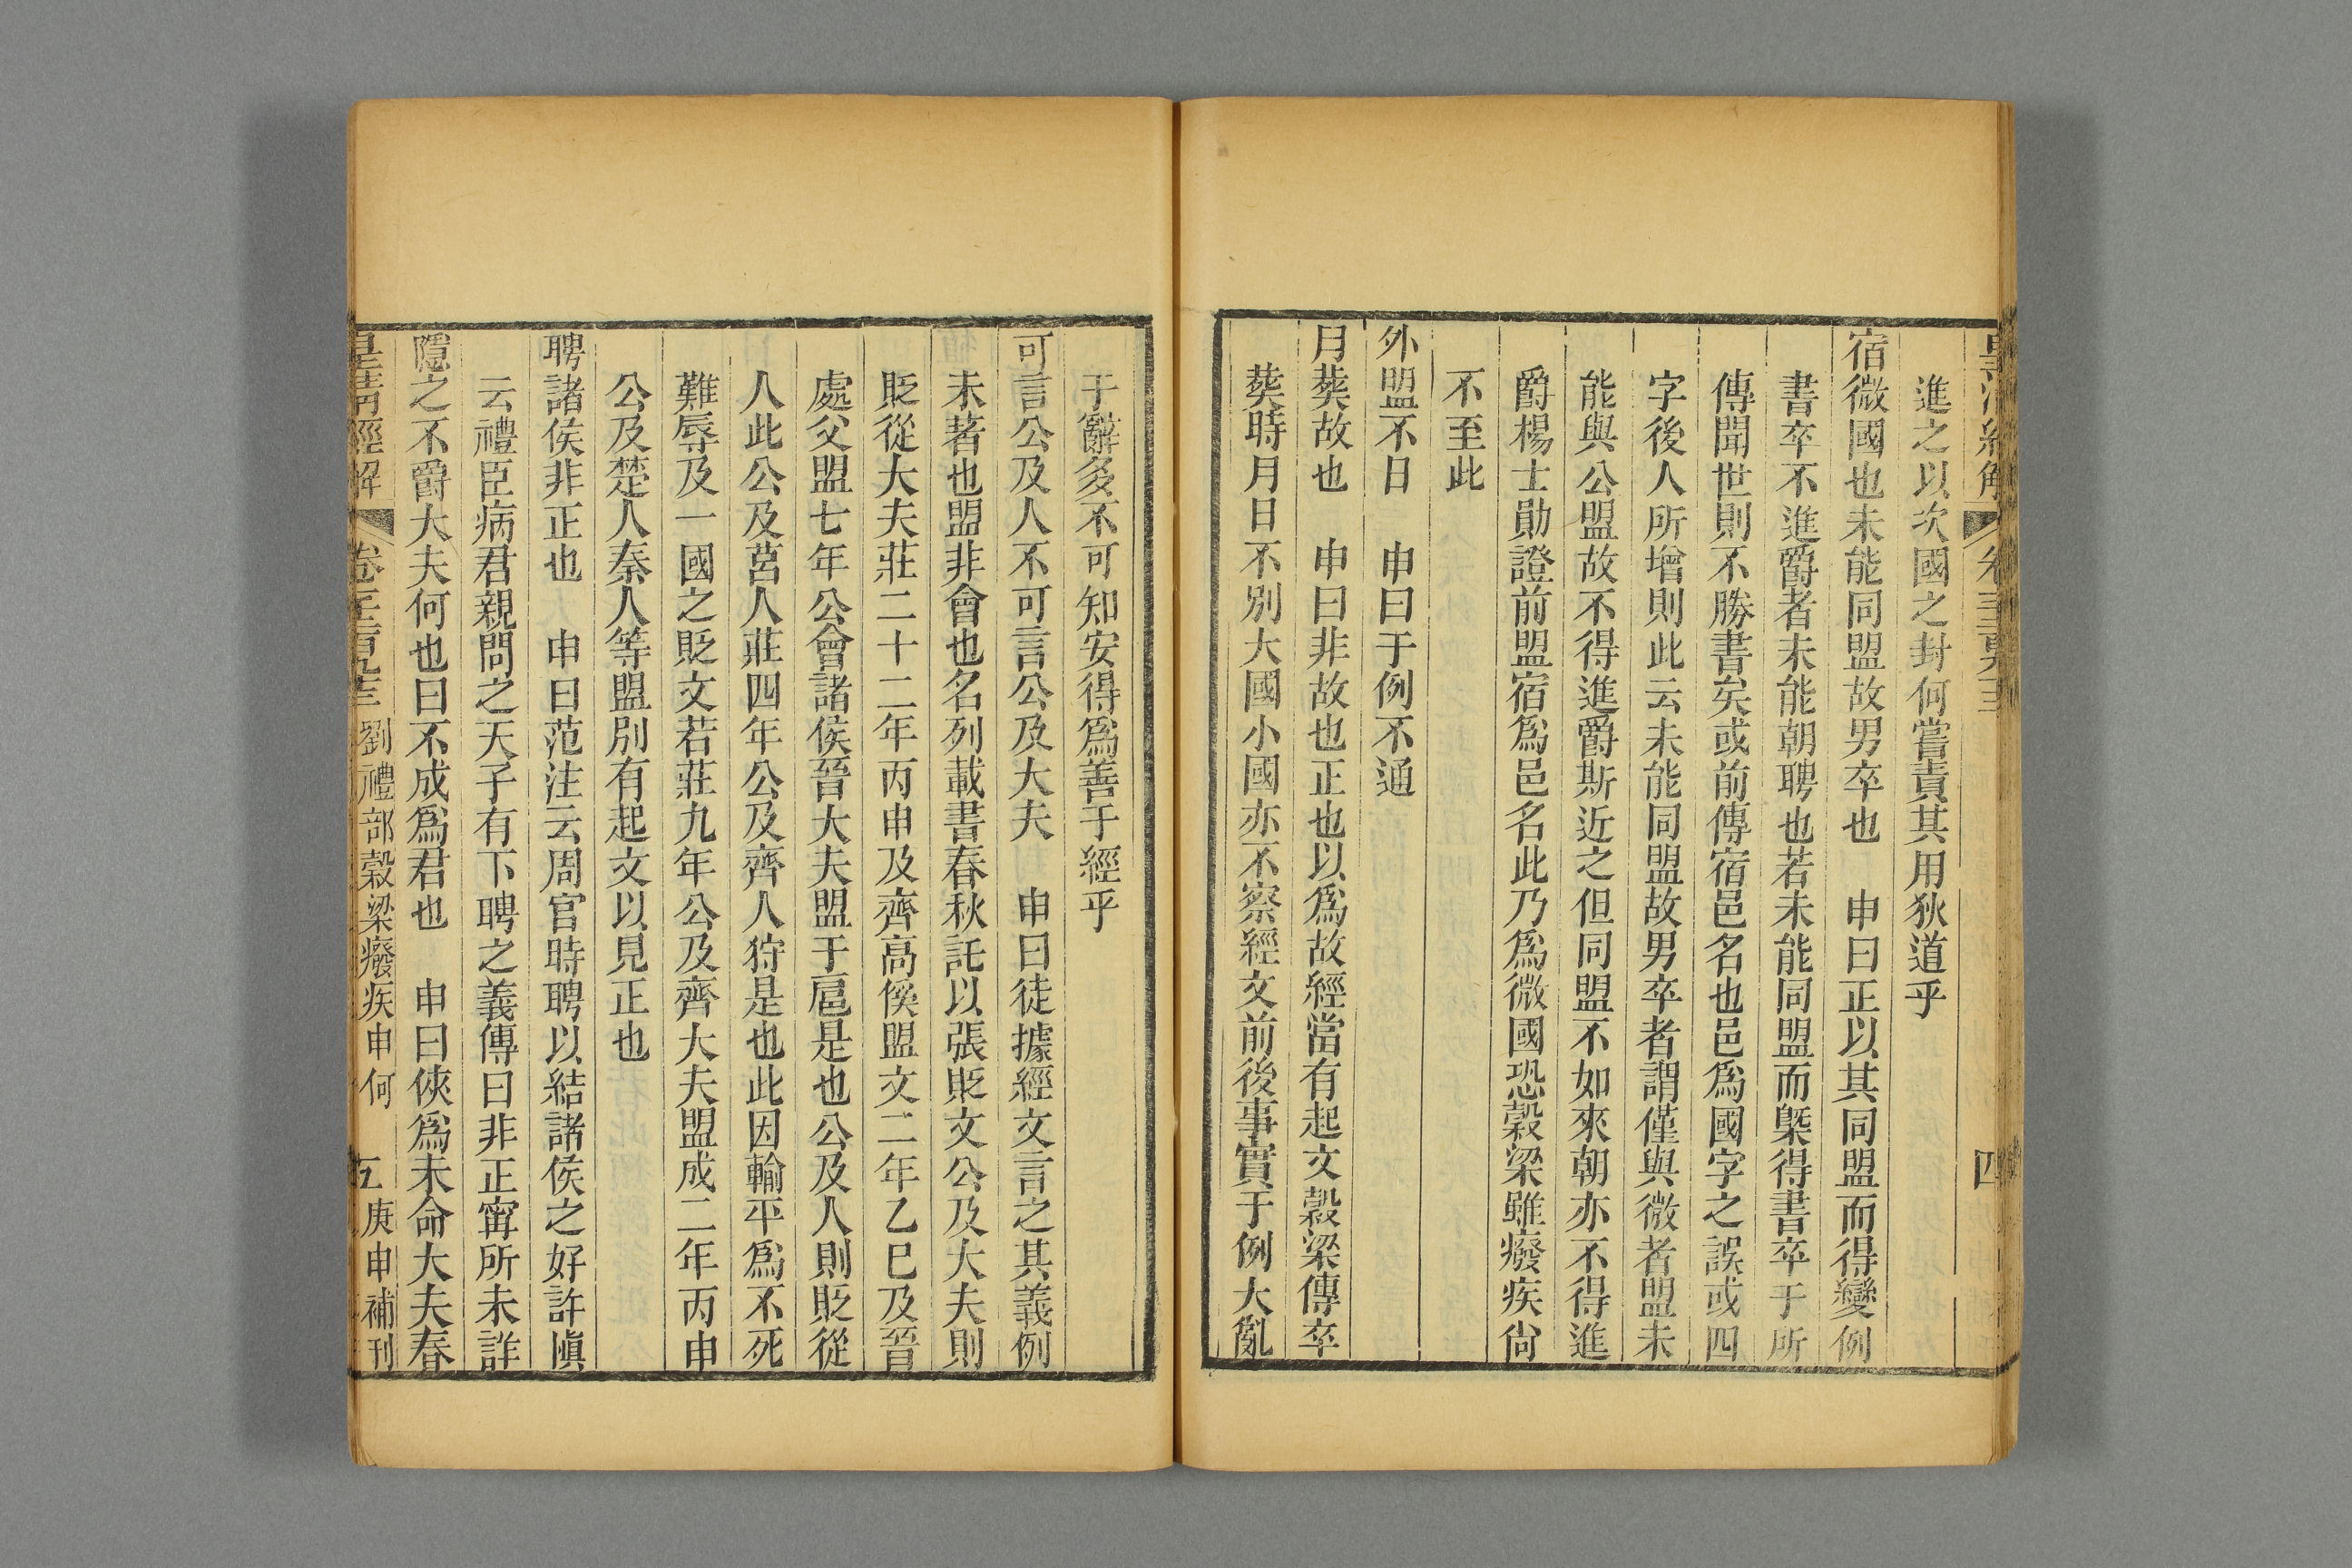 進之以次國之封何嘗責其用狄道乎
宿微國也未能同盟故男卒也　申曰正以其同盟而得變例
書卒不進爵者未能朝聘也若未能同盟而槩得書卒于所
傳聞世則不勝書矣或前傳宿邑名也邑爲國字之誤或四
字後人所增則此云未能同盟故男卒者謂僅與微者盟未
能與公盟故不得進爵斯近之但同盟不如來朝亦不得進
爵楊士勛證前盟宿爲邑名此乃爲微國恐穀梁雖癈疾尙
不至此
外盟不日　申曰于例不通
月葬故也　申曰非故也正也以爲故經當有起文穀梁傳卒
葬時月日不別大國小國亦不察經文前後事實于例大亂
四
于辭多不可知安得爲善于經乎
可言公及人不可言公及大夫　申曰徒據經文言之其義例
未著也盟非會也名列載書春秋託以張貶文公及大夫則
貶從大夫莊二十二年丙申及齊高傒盟文二年乙巳及晉
處父盟七年公會諸侯晉大夫盟于扈是也公及人則貶從
人此公及莒人莊四年公及齊人狩是也此因輸平爲不死
難辱及一國之貶文若莊九年公及齊大夫盟成二年丙申
公及楚人秦人等盟別有起文以見正也
聘諸侯非正也　申曰范注云周官時聘以結諸侯之好許愼
云禮臣病君親問之天子有下聘之義傳曰非正甯所未詳
隱之不爵大夫何也曰不成爲君也　申曰俠爲未命大夫春
皇清經解　劉禮部穀梁癈疾申何　五　庚申補刊